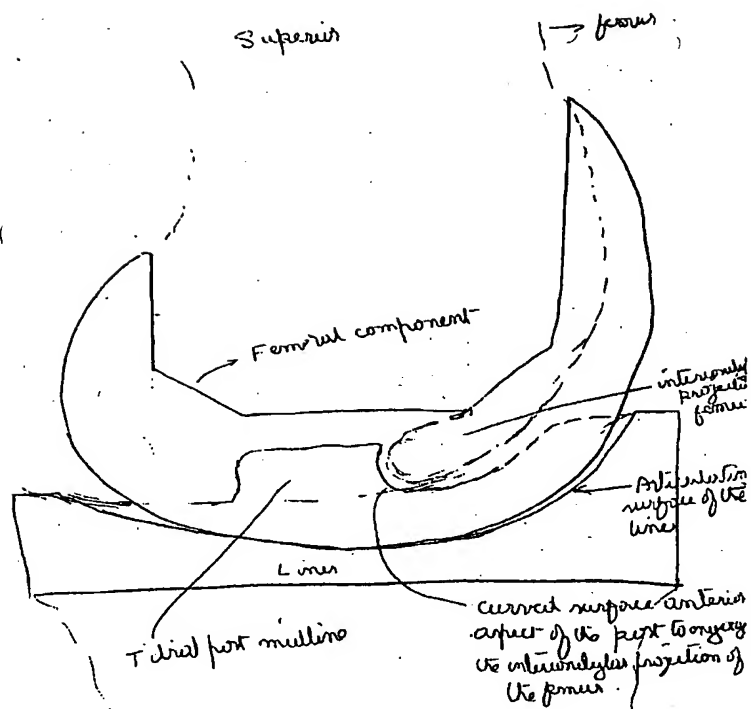 Superior
→ femur
Femoral component
femur
Articulation
surface of the
liner
Liner
Tibial post midline
curved surface anterior
aspect of the post to engage
the intercondylar projection of
the femur.